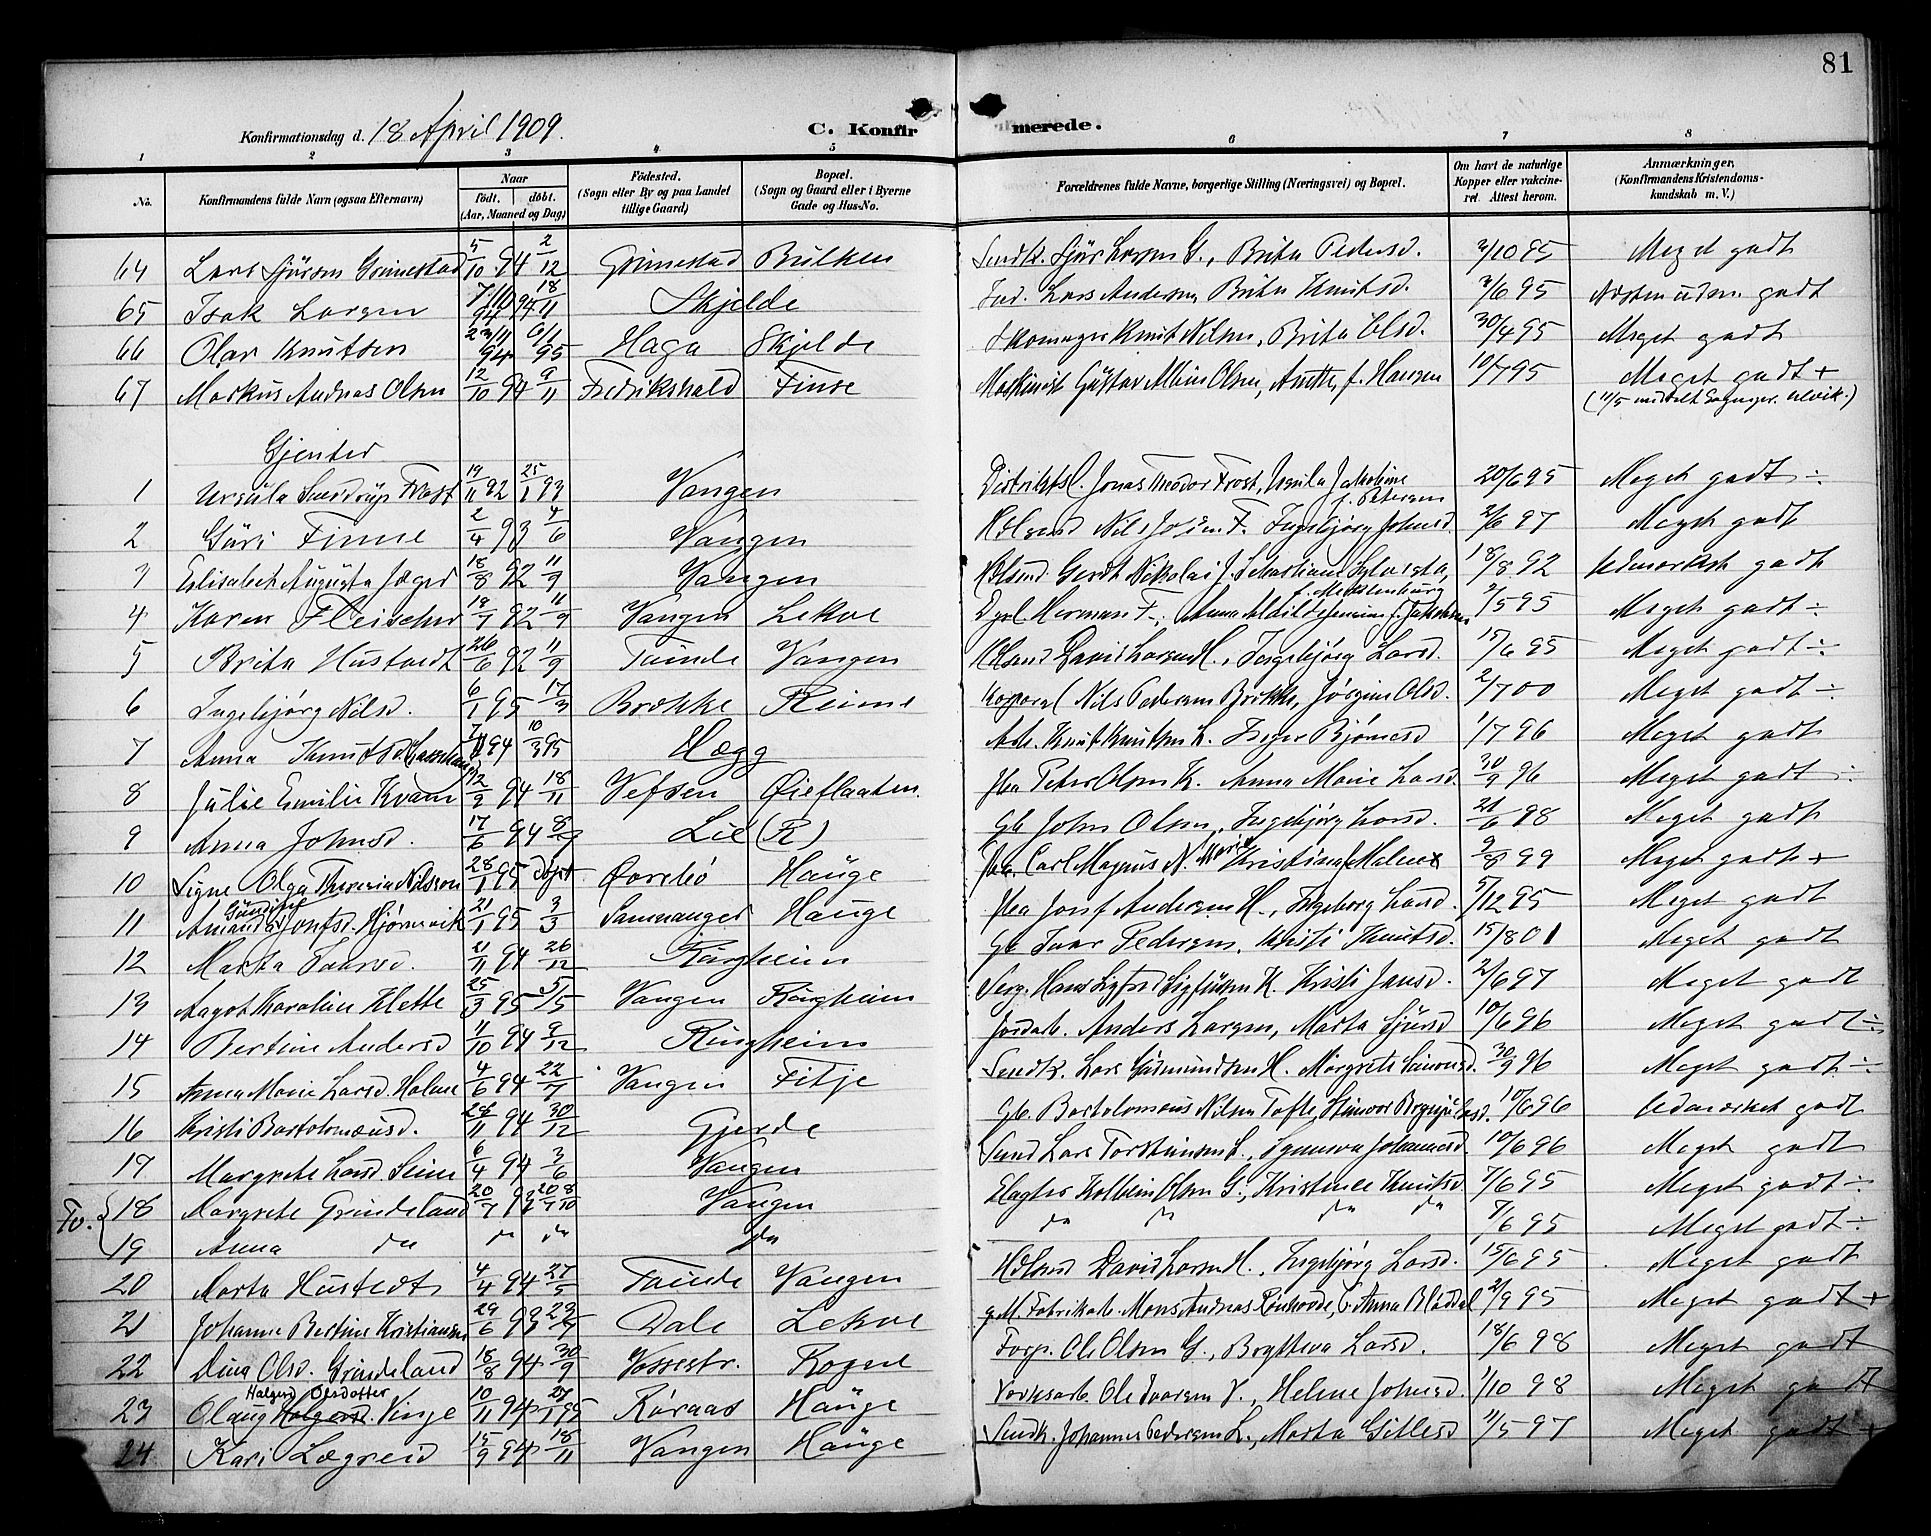 81
Konfirmationsdag d. 18 April 1909.
C. Konfirmerede.
1 2 3 4 5 6 7 8
No. Konfirmandens fulde Navn (ogsaa Efternavn) Naar født. døbt. (Aar, Maaned og Dag) Fødested. (Sogn eller By og paa Landet tillige Gaard) Bopæl. (Sogn og Gaard eller i Byerne Gade og Hus-No. Forældrenes fulde Navne, borgerlige Stilling (Næringsvei) og Bopæl. Om havt de naturlige Kopper eller vakcineret. Attest herom. Anmærkninger, (Konfirmandens Kristendomskundskab m. V.)
64 Lars Sjursen Grimestad 5/10 94 2/12 Grimestad Bulken Smdk. Sjur Larsen G., Brita Pedersd. 3/10 95 Meget godt
65 Isak Larsen 7/10 94 18/11 Skjelde Lars Andersen, Brita Knutsd. 3/6 95 Næsten uden. godt
66 Olav Knutsen 23/11 94 6/1 95 Haga Skjelde Skomager Knut Nilsen, Brita Olsd. 30/4 95 Meget godt
67 Markus Andreas Olsen 12/10 94 9/11 Fredrikshald Finse Maskinist Gustav Olsen, f. Hansen 10/7 95 Meget godt +
(11/5 meddelt Sognepr. Ulvik.)
Gjenter
1 Ursula Smedrup Frost 19/11 92 25/1 93 Vangen Distriktsl. Jonas Theodor Frost, Ursula Jakobine f. Petersen 20/6 95 Meget godt ÷
2 Guri Finne 2/4 93 4/6 Vangen Nils F. Ingebjørg Johnsd. 2/6 97 Meget godt
3 Elisabeth Augusta Jæger 18/8 92 11/9 Vangen Gerdt Nikolai J. Sebastiane Sylvesta, f. Meklenburg 18/8 92 Udmærket godt
4 Karen Fleischer 19/7 92 11/9 Vangen Lekve Herman F., Anna f. Jakobsen 2/5 95 Meget godt ÷
5 Brita Hustedt 26/6 92 11/9 Tvinde Vangen David Larsen H., Ingebjørg Larsd. 15/6 95 Meget godt ÷
6 Ingebjørg Nilsd. 6/1 95 17/3 Brekke Reime Korporal Nils Pedersen Brekke, Jørgine Olsd. 2/7 00 Meget godt ÷
7 Anna Knutsd. 94 10/3 95 Hægg Arb. Knut Knutsen L. Inger Bjørnesd 1/7 96 Meget godt
8 Julie Emilie Kvam 12/9 94 18/11 Vefsen Øieflaaten Peter Olsen K. Anna Marie Larsd. 30/9 96 Meget godt ÷
9 Anna Johnsd. 17/6 94 8/7 Lie (R) Gb. John Olsen, Ingebjørg Larsd. 21/6 98 Meget godt
10 Signe Olga Theresia Nilsson 28/1 95 døpt. Ørebró Hauge Carl Magnus N. Marie Kristina f. Malmer 9/8 99 Meget godt +
11 Amanda Gunda Josefsd. Hjørnevik 21/1 95 3/3 Samnanger Hauge Josef Andersen H., Ingeborg Larsd. 5/12 95 Meget godt
12 Marta Ivarsd. 21/11 94 26/12 Ringheim Gb. Ivar Pedersen, Kristi Knutsd. 15/8 01 Meget godt
13 Aagot Karoline Klette 25/3 95 5/5 Vangen Ringheim Serg. Hans K. Kristi Jansd. 2/6 97 Meget godt
14 Bertine Andersd 11/10 94 9/12 Ringheim Jordarb. Anders Larsen, Marta Sjursd 10/6 96 Meget godt ÷
15 Anna Marie Larsd. Holme 4/6 94 22/7 Vangen Fitje Smdk. Lars Gudmundsen H. Margrete Simonsd. 30/9 96 Meget godt ÷
16 Kristi Bartolomæusd. 28/11 94 30/12 Gjerde Gb. Bartolomæus Nilsen Tofte, 10/6 96 Udmærket godt
17 Margrete Larsd Seim 6/4 94 3/6 Vangen Lars Torsteinsen, Synneva Johannesd. 10/6 96 Meget godt
Tv. { 18 Margrete Grindeland 20/7 93 20/8 Vangen Slagter Kolbein Olsen G., Kristense Knutsd. 7/6 95 Meget godt ÷
19 Anna do do do do do do do do 7/6 95 Meget godt ÷
20 Marta Hustedt 4/4 94 27/5 Tvinde Vangen David Larsen H., Ingebjørg Larsd. 15/6 95 Meget godt
21 Johanne Bertine Kristiansen 29/6 93 23/7 Dale Lekve Fabrikarb. Mons Andreas 2/9 95 Meget godt +
22 Dina Olsd. Grindeland 18/8 94 30/9 Vossestr. Rogne Forp. Ole Olsen G., Brytteva Larsd. 18/6 98 Meget godt
23 Olaug Halgerd Olsdotter Vinje 10/11 94 27/1 95 Røraas Hauge Ole Ivarsen V., Helene Johnsd. 1/10 98 Meget godt
24 Kari Lægreid 15/9 94 18/11 Vangen Hauge Smdk. Johannes Pedersen L., Marta Gitlesd 11/5 97 Meget godt +